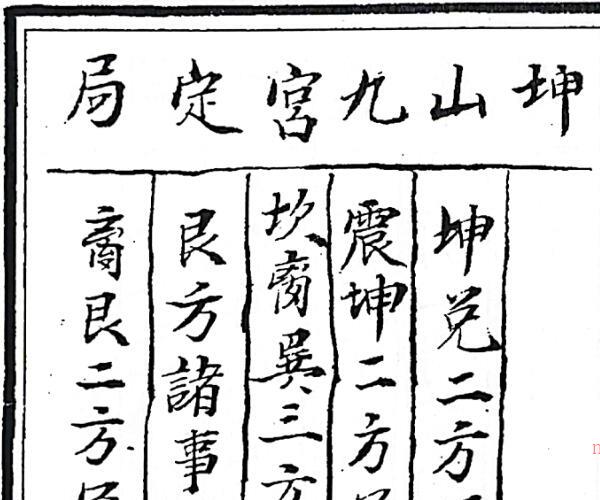 坤山九宮定局
坤兌二方
震坤二方
坎離巽三方
艮方諸事
離艮二方